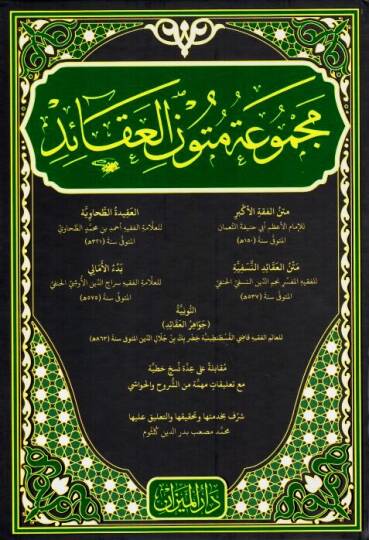 مجموعة متون العقائد
متن الفقه الأكبر
للإمام الأعظم أبي حنيفة النعمان
المتوفى سنة (١٥٠هـ)
العقيدة الطحاوية
للعلامة الفقيه أحمد بن محمد الطحاوي
المتوفى سنة (٣٢١هـ)
متن العقائد النسفية
للفقيه المفسر نجم الدين النسفي الحنفي
المتوفى سنة (٥٣٧هـ)
بدء الأمالي
للعلامة الفقيه سراج الدين الأوشي الحنفي
المتوفى سنة (٥٧٥هـ)
النونية
(جواهر العقائد)
للعالم الفقيه قاضي القسطنطينية خضر بك بن جلال الدين المتوفى سنة (٨٦٣هـ)
مقابلة على عدة نسخ خطية
مع تعليقات مهمة من الشروح والحواشي
شرف بخدمتها وتحقيقها والتعليق عليها
محمد مصعب بدر الدين كلثوم
دار الميراث